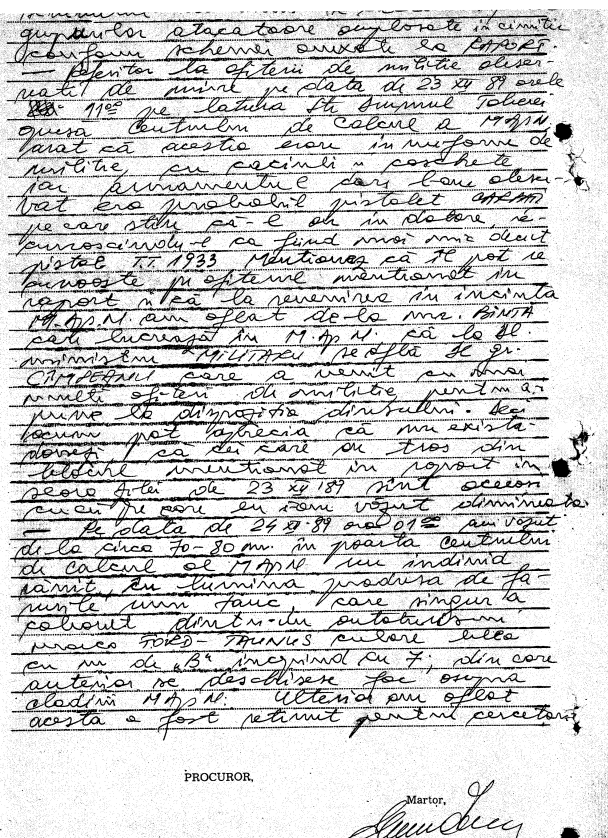 grupurilor atacatoare amplasate in cimitir
conform schemei anexate la RAPORT.
— Referitor la ofiterii de militie obser-
vati de mine pe data de 23 XII 89 orele
11⁰⁰ pe latura Str Drumul Taberei
Centrului de Calcul a MApN.
arat că acestia erau in uniforme de
militie, cu cascheti
iar armamentul care l-am obser-
vat era probabil pistolet CARPATI
pe care stiu că-l au in dotare, re-
cunoscindu-l ca fiind mai mic decit
pistol T.T. 1933 Mentionez că il pot re
cunoaste pe ofiterul mentionat in
raport si că la revenirea in incinta
M.Ap.N. am aflat de la
care lucrează in M.Ap.N. că la dl.
ministru MILITARU se află dl gr.
CIMPEANU care a venit cu mai
multi ofiteri de militie, pentru a-i
pune la dispozitia dinsului. Deci
acum pot aprecia că nu există
dovezi, că cei care au tras din
blocul mentionat in raport in
seara zilei de 23 XII '89 sint aceeasi
cu cei pe care eu i-am văzut dimineata
— Pe data de 24 XII 89 ora 01⁰⁰ am văzut
de la circa 70-80 m. in poarta centrului
de calcul al MApN un individ
rănit, in lumina produsa de fa-
rurile unui tanc, care singur a
coborit dintr-un autoturism
marca FORD-TAUNUS culoare
cu nr de „B" incepind cu 7; din care
anterior se deschisese foc asupra
cladirii MApN. Ulterior am aflat
acesta a fost retinut pentru cercetari
PROCUROR,
Martor,